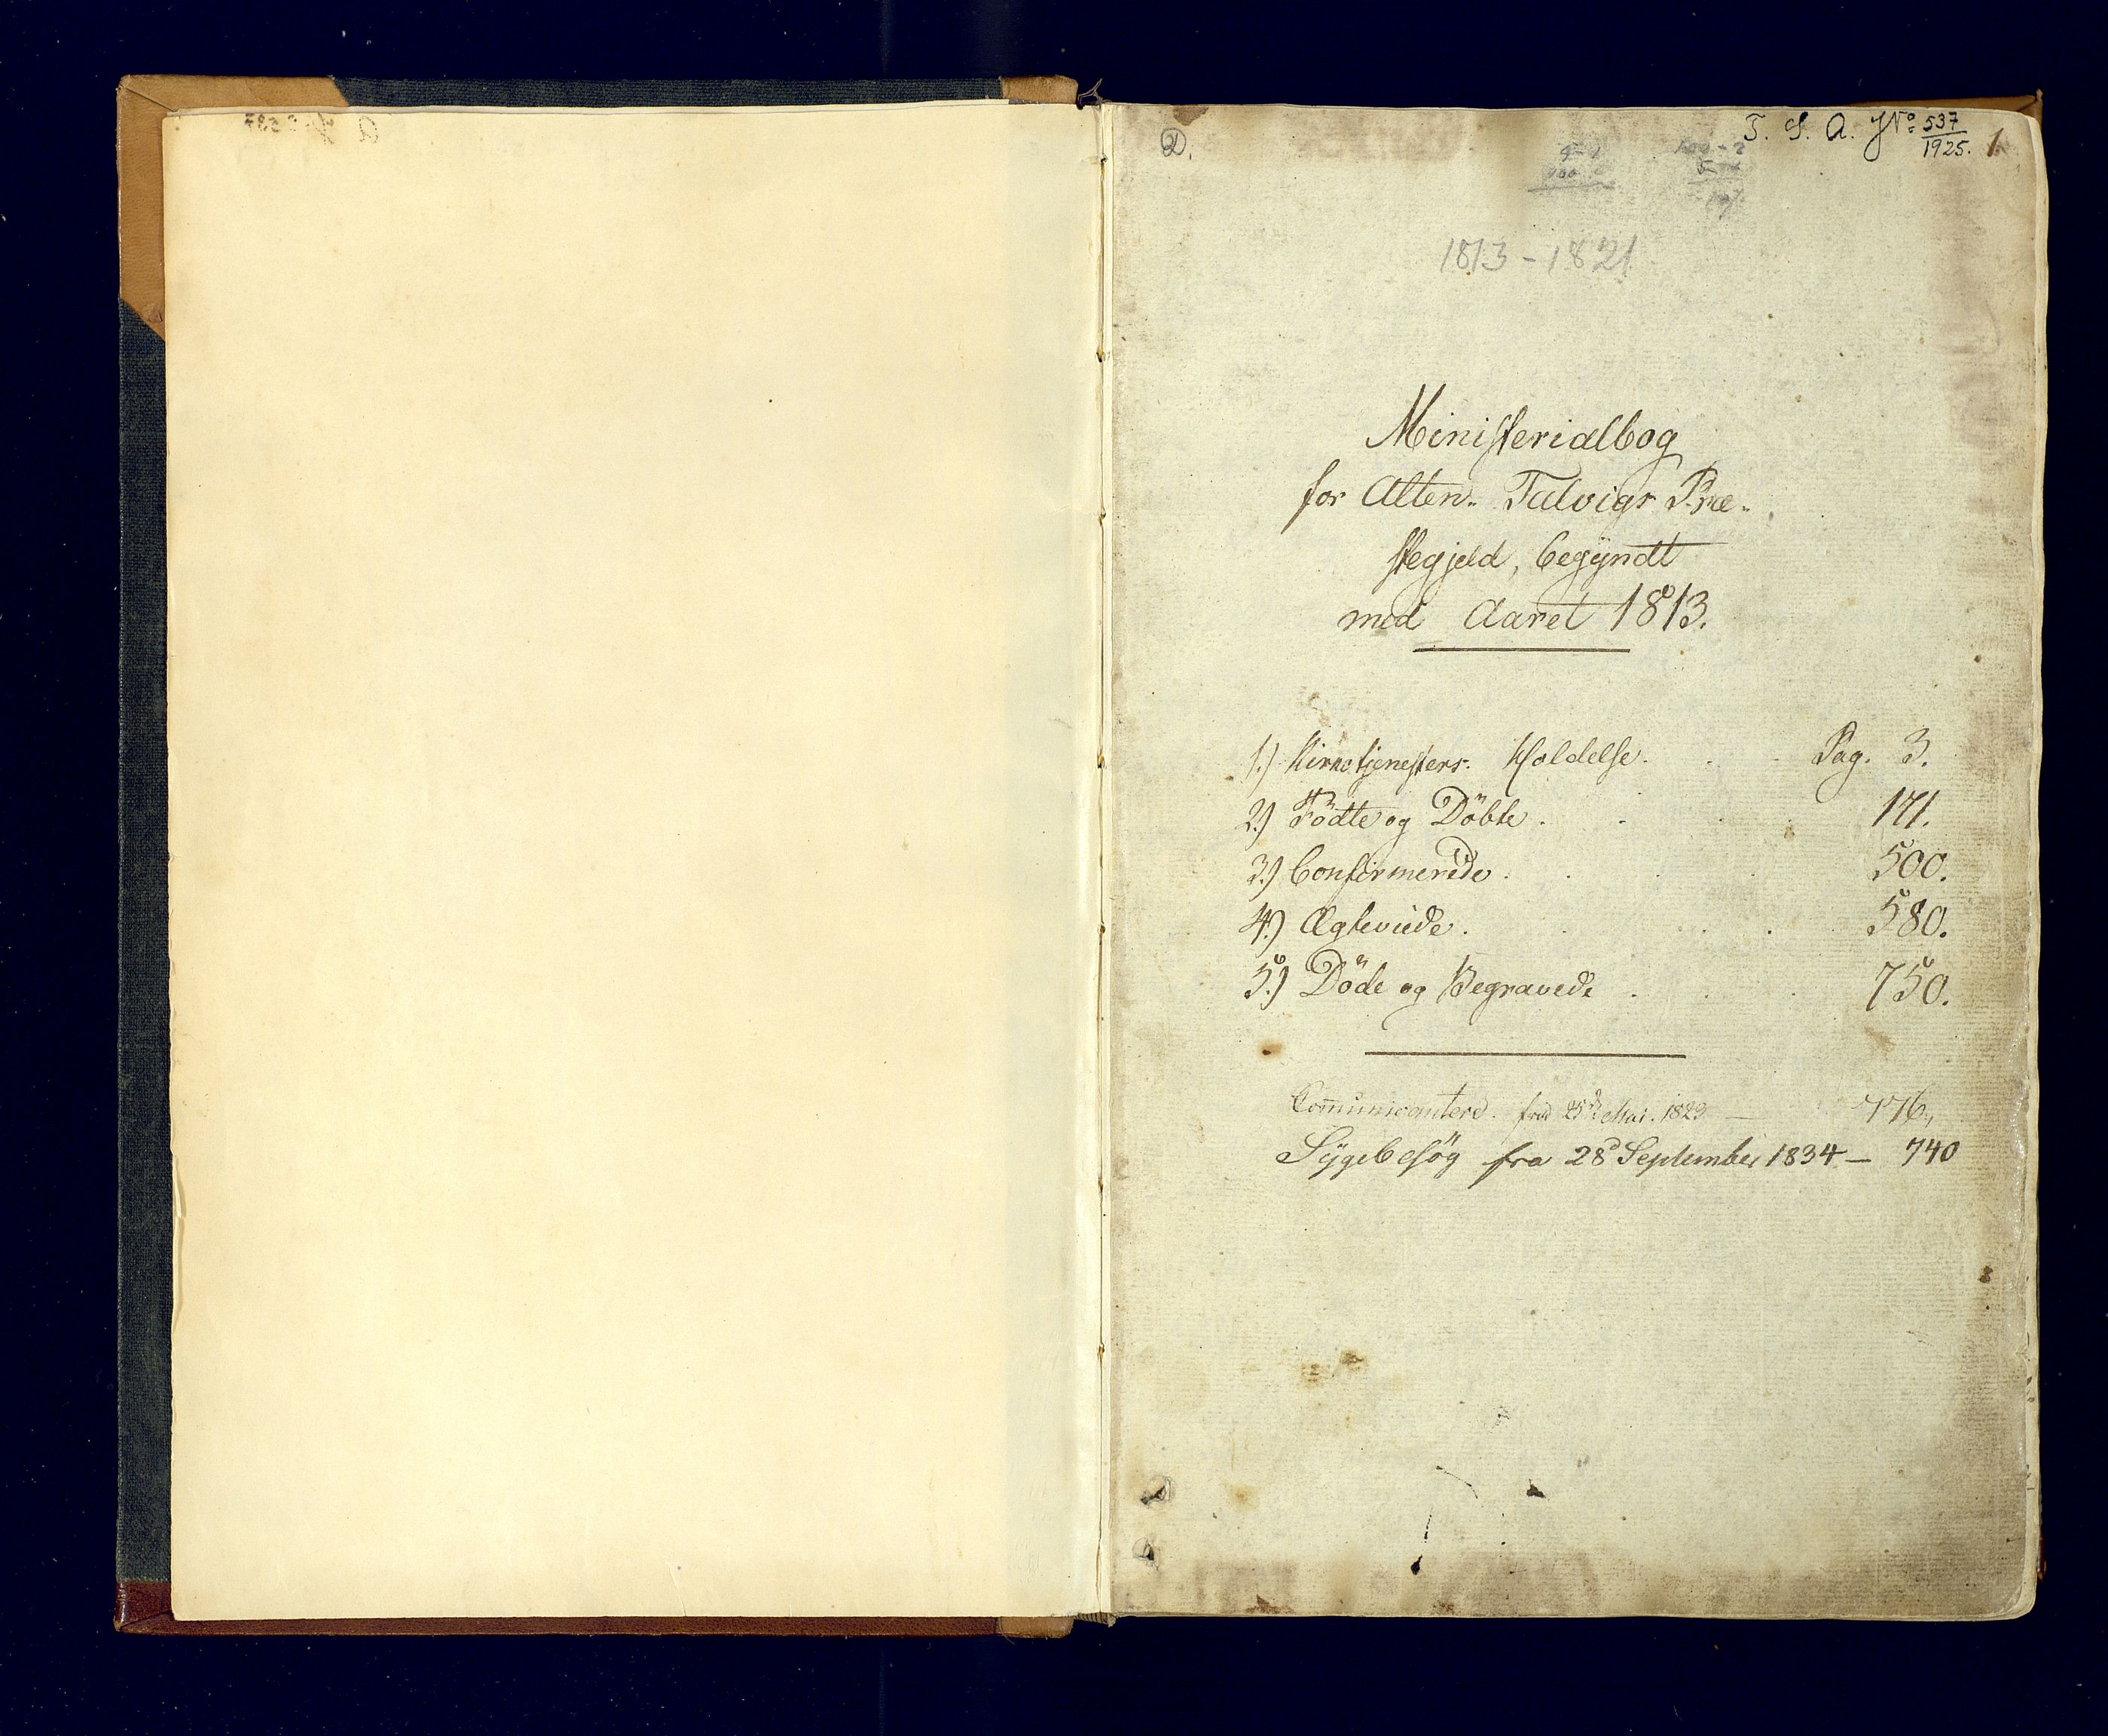 T. S. A. J Nº 537/1925. 1.
2.
1813 - 1821
Ministerialbog
for Alten- Talvigs Præ-
stegjeld, begyndt
med Aaret 1813.
1.) Kirketjenestens Holdelse. Pag. 3.
2.) Födte og Döbte. 171.
3.) Confirmerede. 500.
4.) Ægteviede. 580.
5.) Döde og Begravede. 750.
Com̄unicantere. fra 25d Mai. 1823. — 776,
Sÿgebesög fra 28d September 1834 — 740